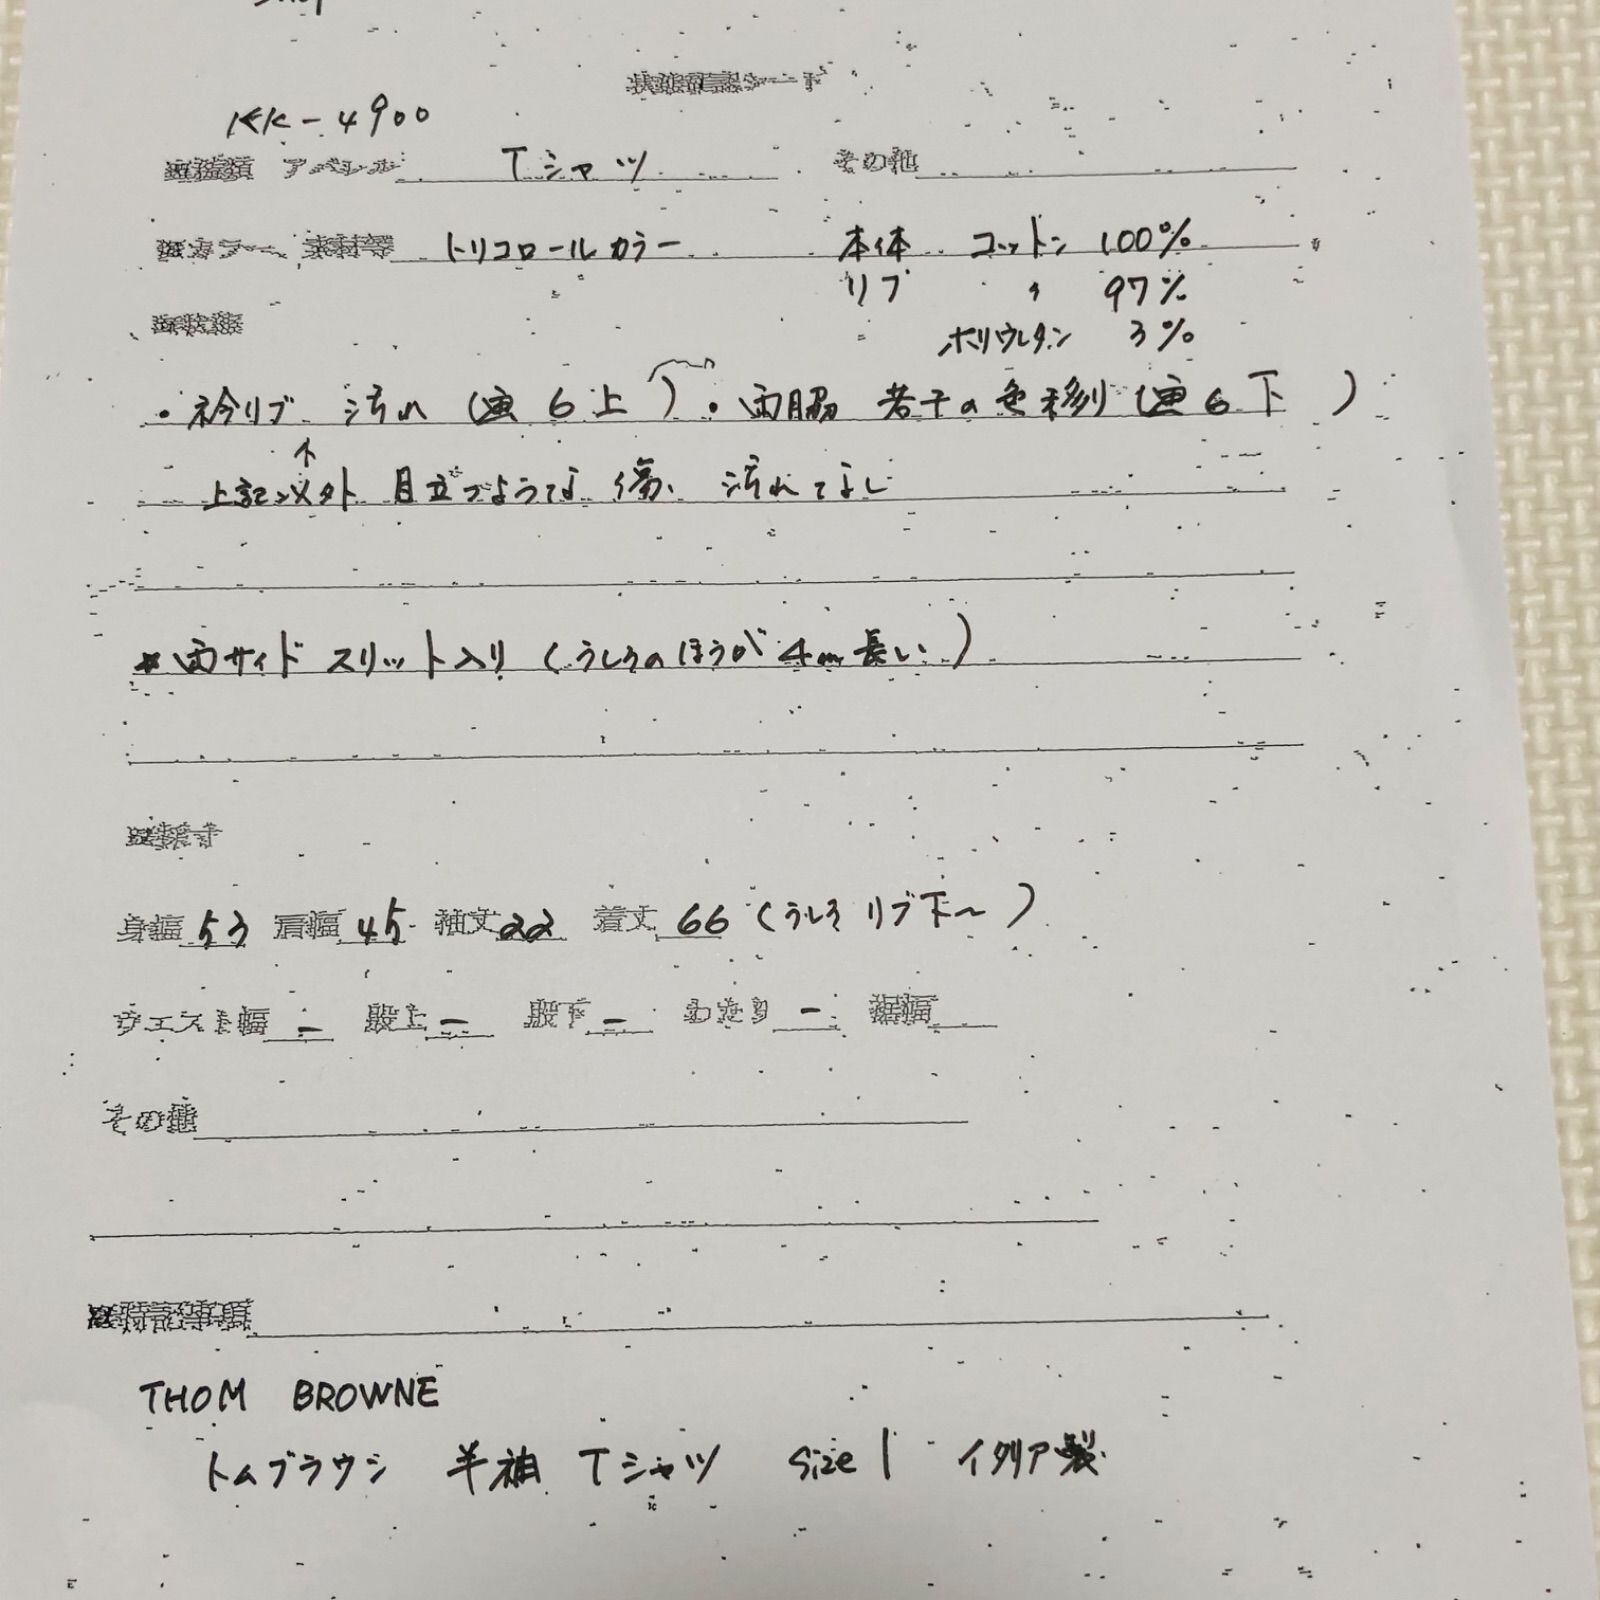 状態確認シート
KK-4900
※種類 アパレル Tシャツ その他
※カラー、素材等 トリコロールカラー 本体 コットン 100%
リブ 〃 97%
ポリウレタン 3%
※状態
・衿リブ 汚れ (画6上)・両脇 若干の色移り(画6下)
↑
上記以外 目立つような傷、汚れてなし
*両サイド スリット入り (うしろのほうが 4cm長い)
※採寸
身幅 53 肩幅 45 袖丈 22 着丈 66 (うしろ リブ下〜)
ウエスト幅 - 股上 - 股下 - わたり - 裾幅
その他
※特記事項
THOM BROWNE
トムブラウン 半袖 Tシャツ size 1 イタリア製